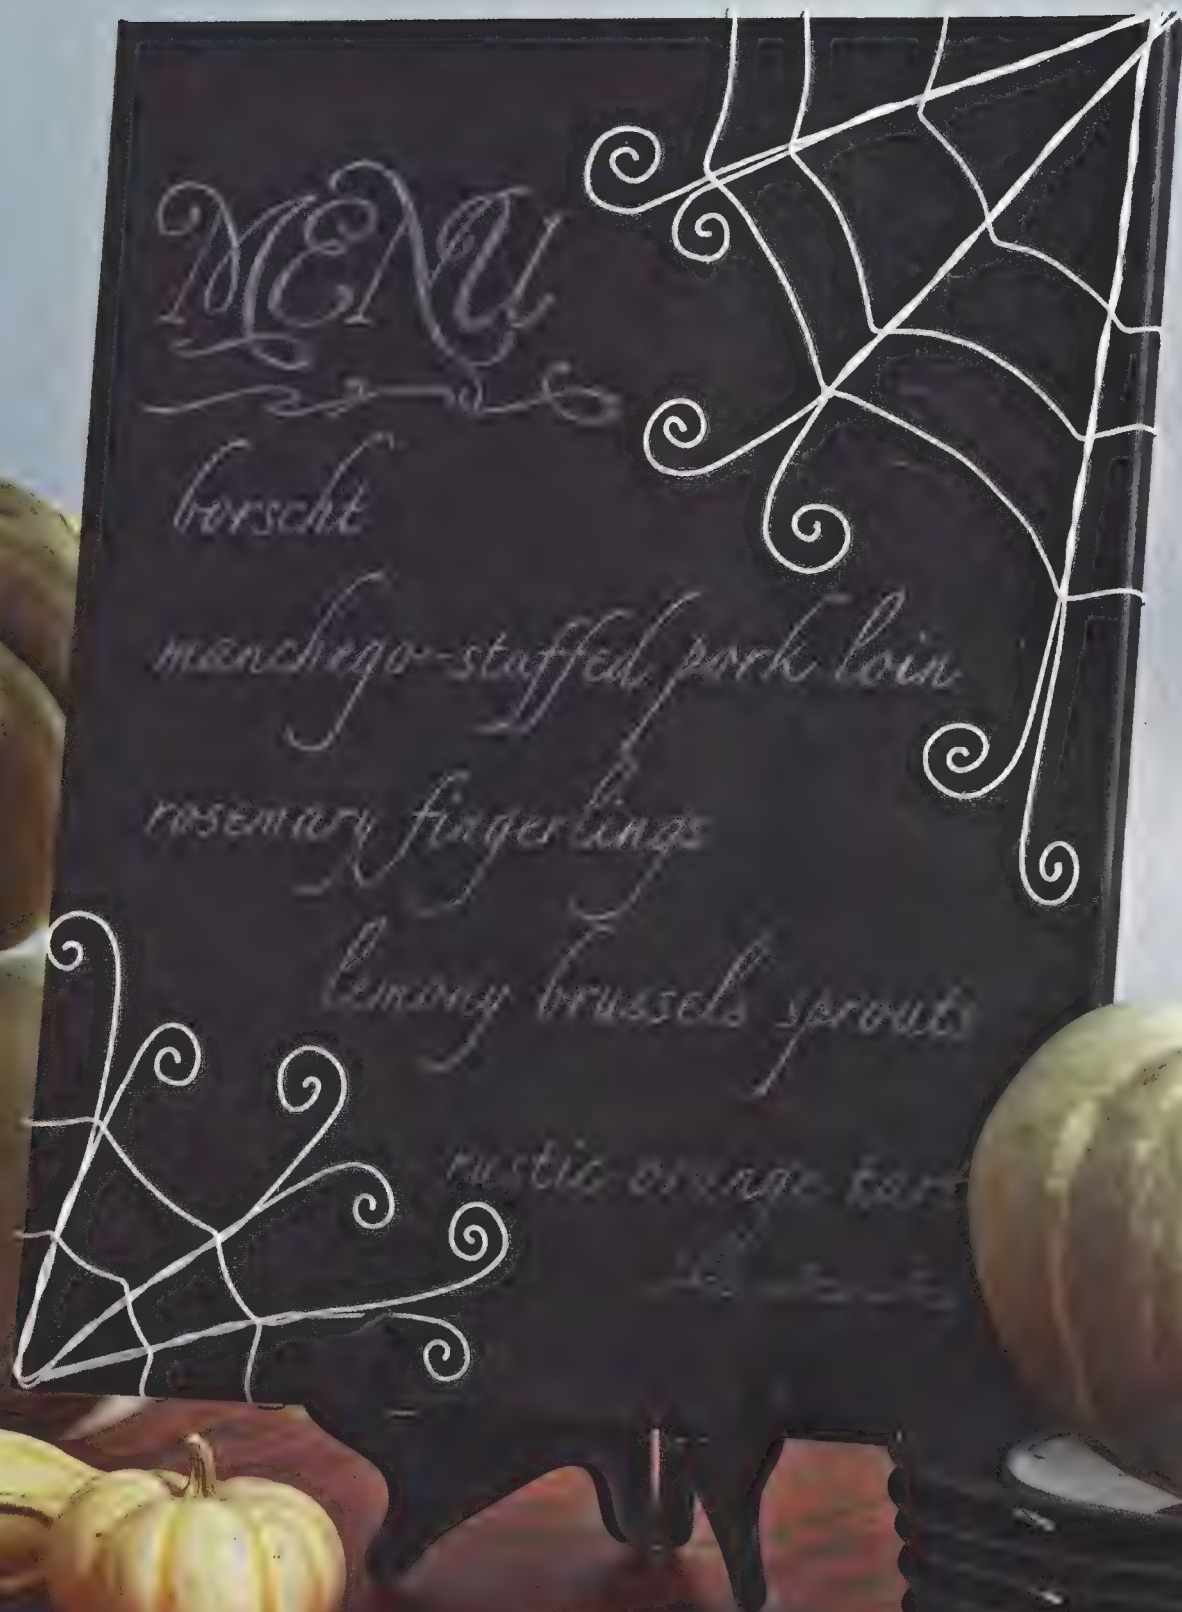 MENU
borscht
manchego-stuffed pork loin
rosemary fingerlings
lemony brussels sprouts
rustic orange tar